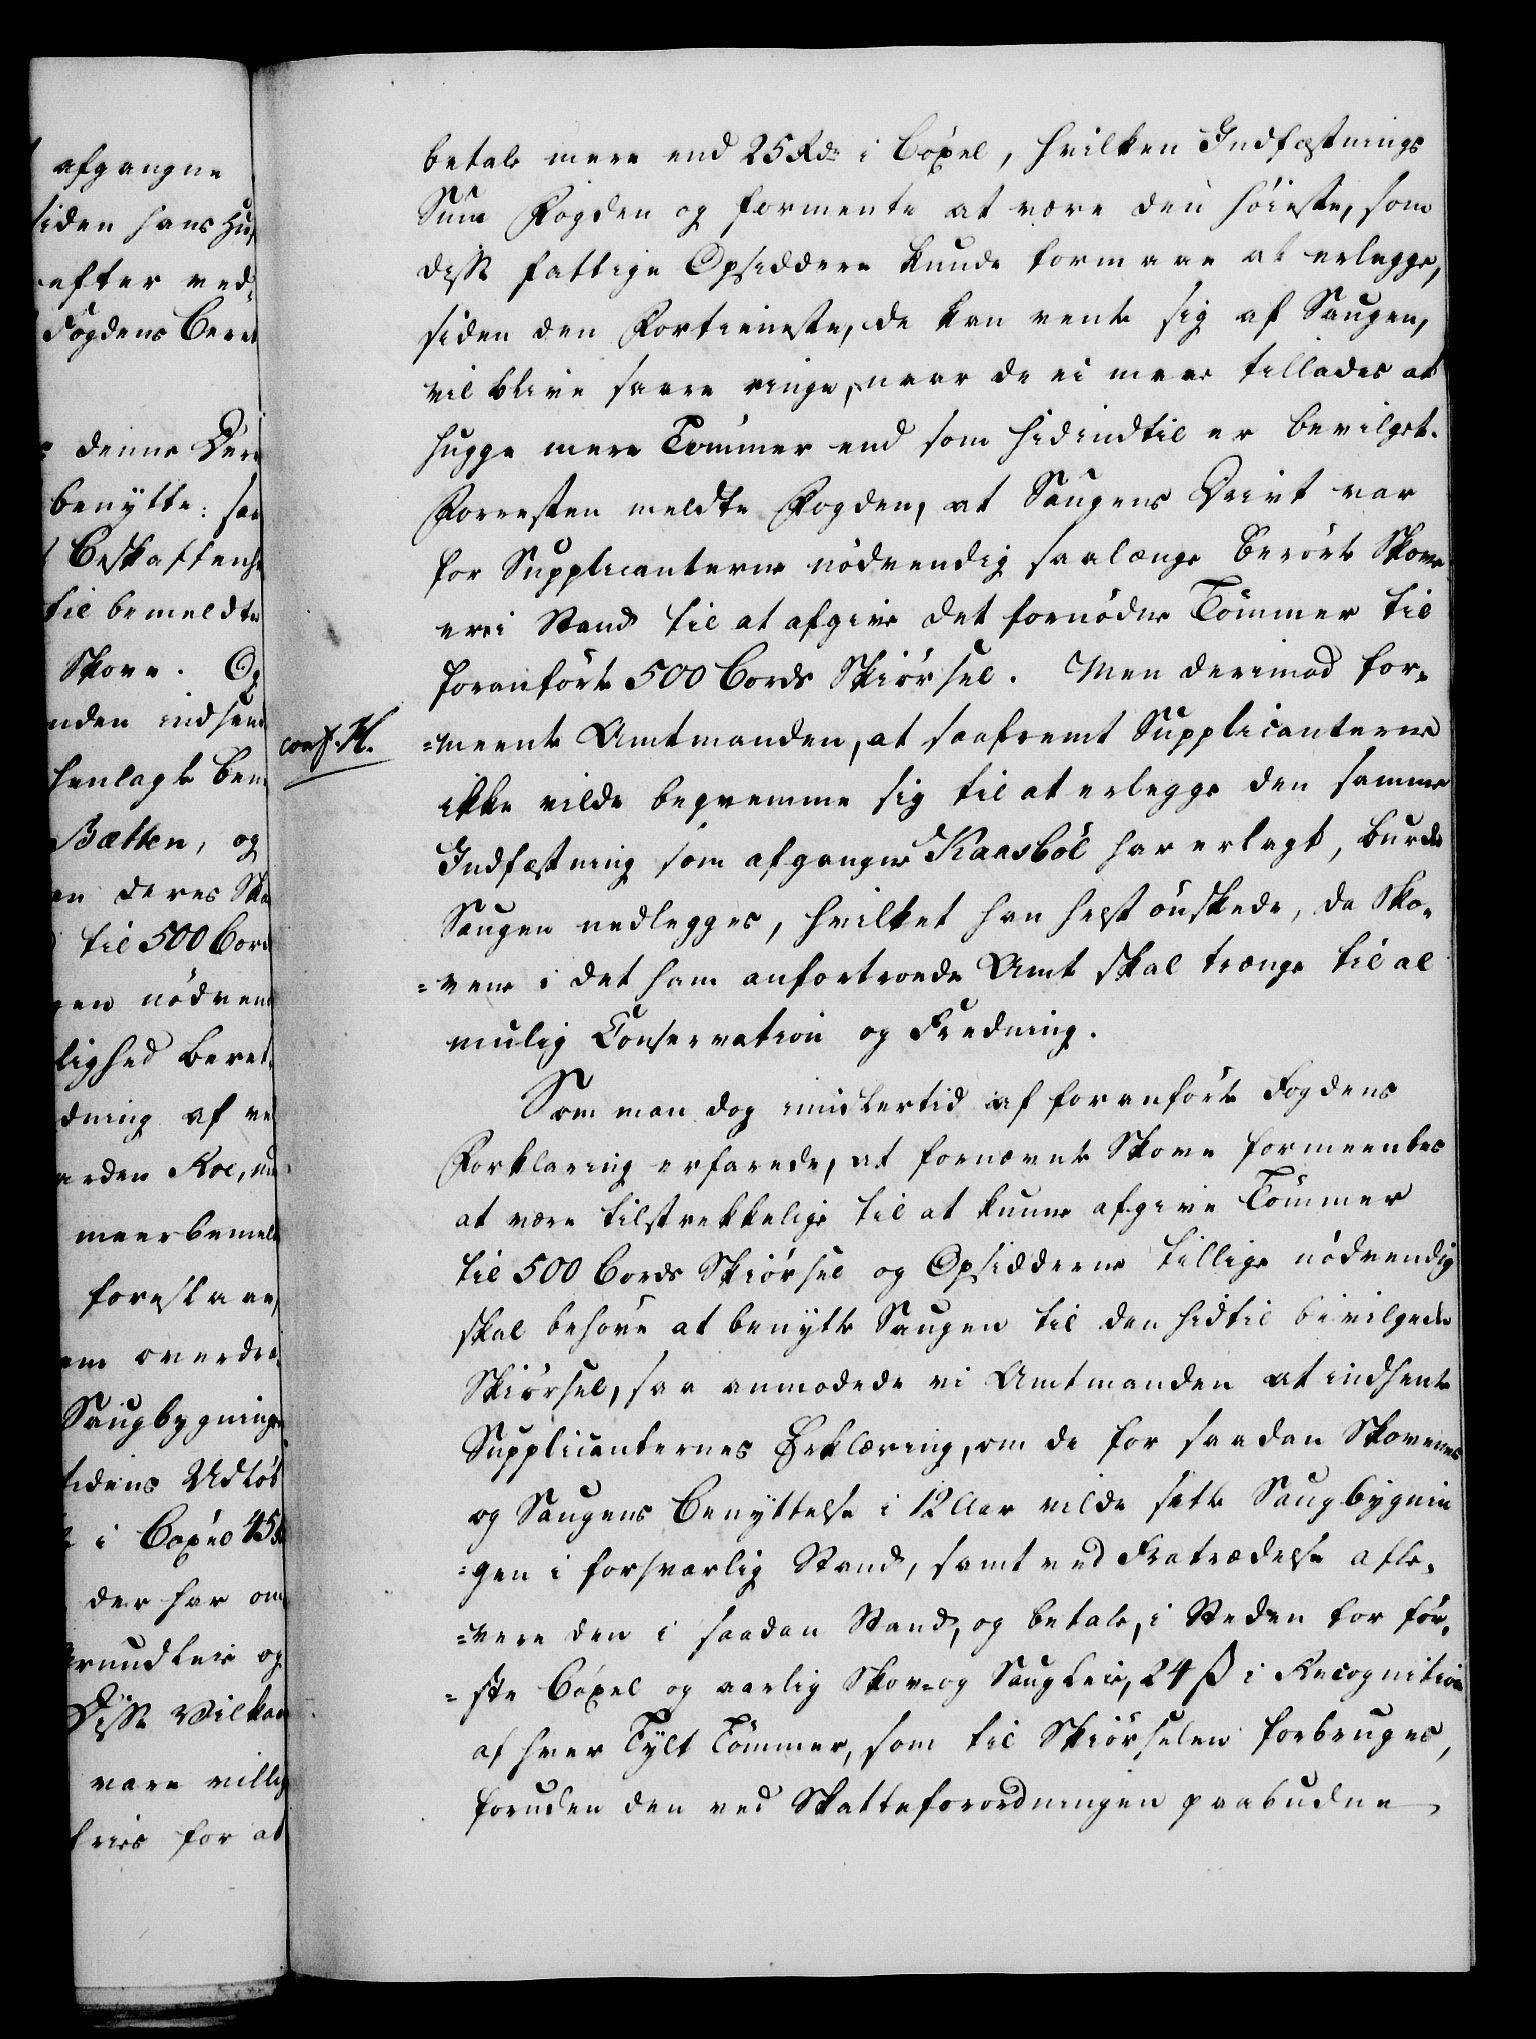 afgangne
siden hans Hu
efter ved
Fogdens Ber
denne
benytte: saa
Beskaffenh
til bemeldte
Skove. Og
nden indsen
henlagte
Bætten, og
deres Sko
til 500 Bord
nödven
lighed beret
dning af
Roe,
meerbemel
foreslaae,
overdra
Saugbygninge
tidens Udløb
i Böxel 45
der har om
og
Disse Vilkaa
vare villig
for at
betale mere end 25 Rdr i Böxel, hvilken Indfæstnings
Sum Fogden og formente at være den höieste, som
disse fattige Opsiddere kunde formaae at erlegge,
siden den Fortieneste, de kan vente sig af Saugen,
vil blive saare ringe, naar de ei maae tillades at
hugge mere Tömmer end som hidindtil er bevilget.
Forresten meldte Fogden, at Saugens Drivt var
for Supplicanterne nödvendig saalænge berörte Skove
er i Stand til at afgive det fornödne Tömmer til
foranförte 500 Bords Skiörsel. Men derimod for-
conf. H.
=meente Amtmanden, at saafremt Supplicanterne
ikke vilde beqvemme sig til at erlegge den samme
Indfæstning som afgangne Kaasböl har erlagt, burde
Saugen nedlegges, hvilket han helst önskede, da Sko-
=vene i det ham anfortroede Amt skal trænge til al
mulig Conservation og Fredning.
Som man dog imidlertid af foranförte Fogdens
Forklaring erfarede, at fornævnte Skove formeentes
at være tilstrekkelige til at kunne afgive Tömmer
til 500 Bords Skiörsel og Opsidderne tillige nödvendig
skal behöve at benytte Saugen til den hidtil bevilgede
Skiörsel, saa anmodede vi Amtmanden at indhente
Supplicanternes Erklæring, om de for saadan Skovenes
og Saugens Benyttelse i 12 Aar vilde sette Saugbygnin
=gen i forsvarlig Stand, samt ved Fratrædelse afle-
=vere den i saadan Stand, og betale, i Steden for för-
=ste Böxel og aarlig Skov- og Saugleie, 24 ß i Recognition
af hver Tylt Tömmer, som til Skiörselen forbruges,
foruden den ved Skatteforordningen paabudne